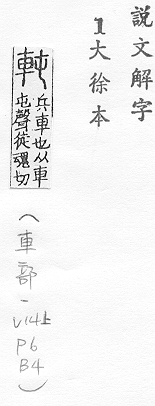 説文解字
1大徐本
軘
兵車也从車
屯聲徒魂切
(車部-
V14上
P6
B4)